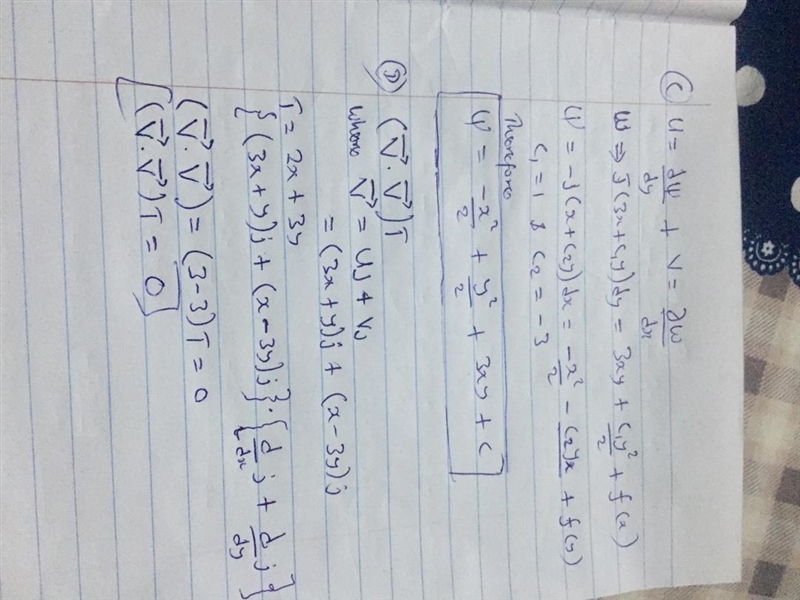 (C) u = dψ/dy + v = ∂ψ/dx
ψ ⇒ ∫(3x + c₁y)dy = 3xy + c₁y²/2 + f(x)
ψ = -∫(x + c₂y)dx = -x²/2 - c₂yx + f(y)
c₁ = 1 & c₂ = -3
Therefore
ψ = -x²/2 + y²/2 + 3xy + c
(D) (V⃗ . ∇⃗)T
where V⃗ = uj + vj
= (3x + y)j + (x - 3y)j
T = 2x + 3y
{(3x + y)j + (x - 3y)j} . {d/dx j + d/dy j}
(V⃗ . V⃗) = (3 - 3)T = 0
(V⃗ . V⃗)T = 0